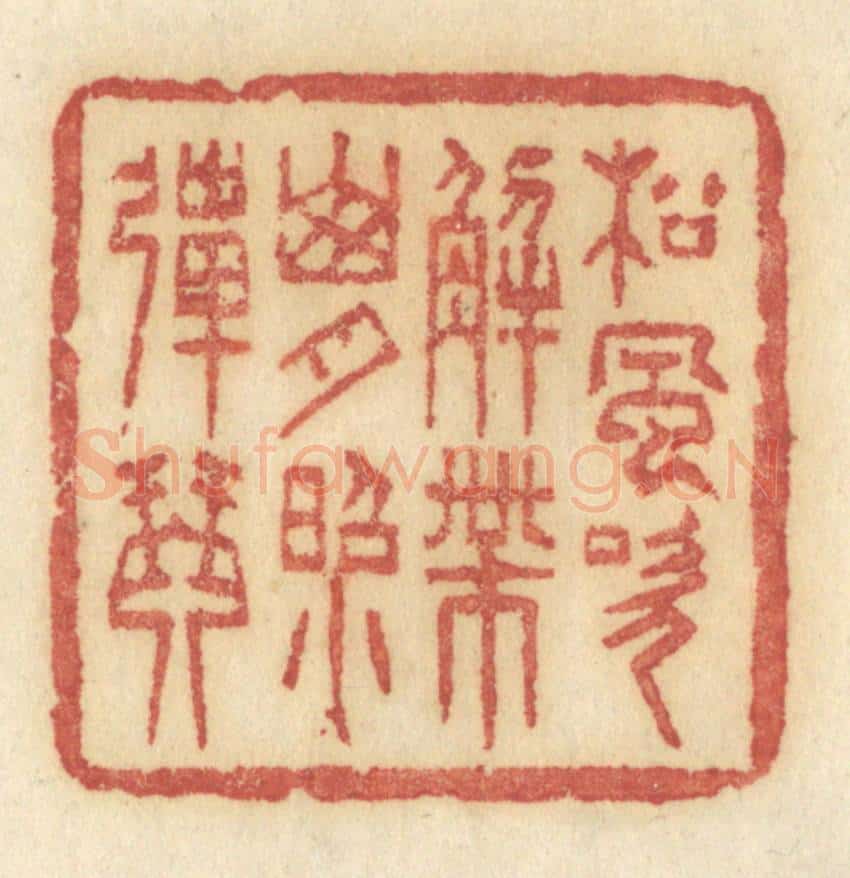 松風吹
解帶
山月照
彈琴
Shufawang.CN